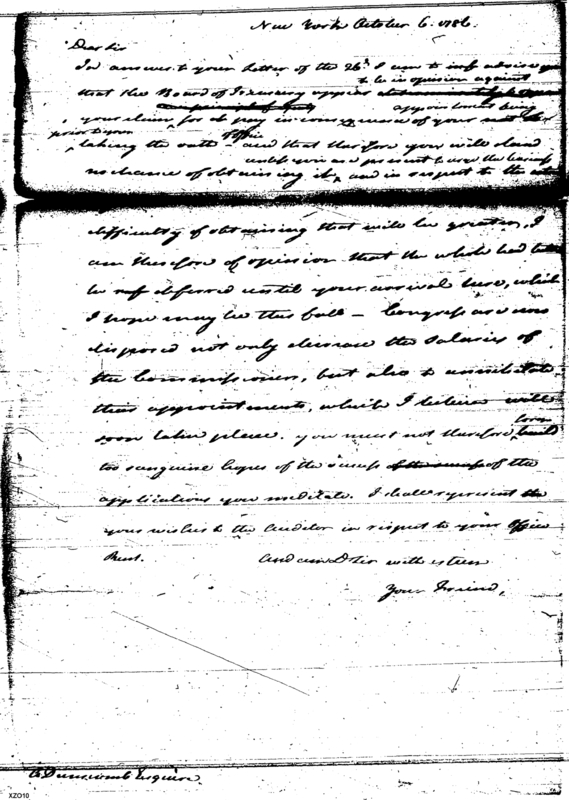 New York October 6. 1786.
Dear Sir
In answer to your letter of the 26th I am to advise you
to be in opinion against
that the Board of Treasury appear
appointment being
your claim for of pay in consequence of your
prior to your office
taking the oath and that therefore you will stand
unless you are present to urge the business
no chance of obtaining it, and in respect to the
difficulty of obtaining that will be greater, I
am therefore of opinion that the whole had better
be deferred until your arrival here, which
I hope may be this fall – Congress are now
disposed not only decrease the Salaries of
the Commissioners, but also to annihilate
their appointments, which I believe will
soon take place. you must not therefore form
too sanguine hopes of the success of the success of the
applications you meditate. I shall represent the
your wishes to the Auditor in respect to your Office
Rent. And am D Sir with esteem
Your Friend,
to Dunscomb Esquire.
XZO10